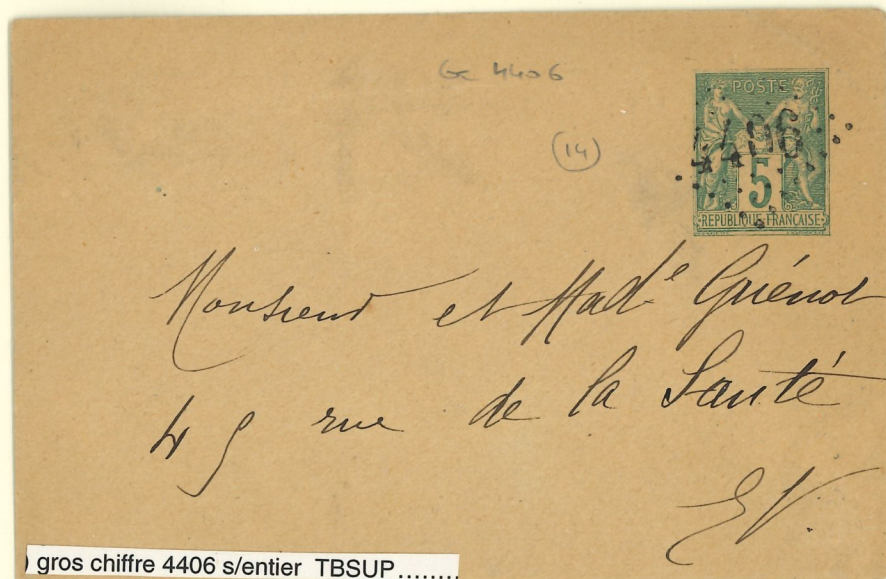 Gc 4406
(14)
POSTE
4406
5
REPUBLIQUE FRANÇAISE
Monsieur et Made Guénot
45 rue de la Santé
EV.
) gros chiffre 4406 s/entier TBSUP ........